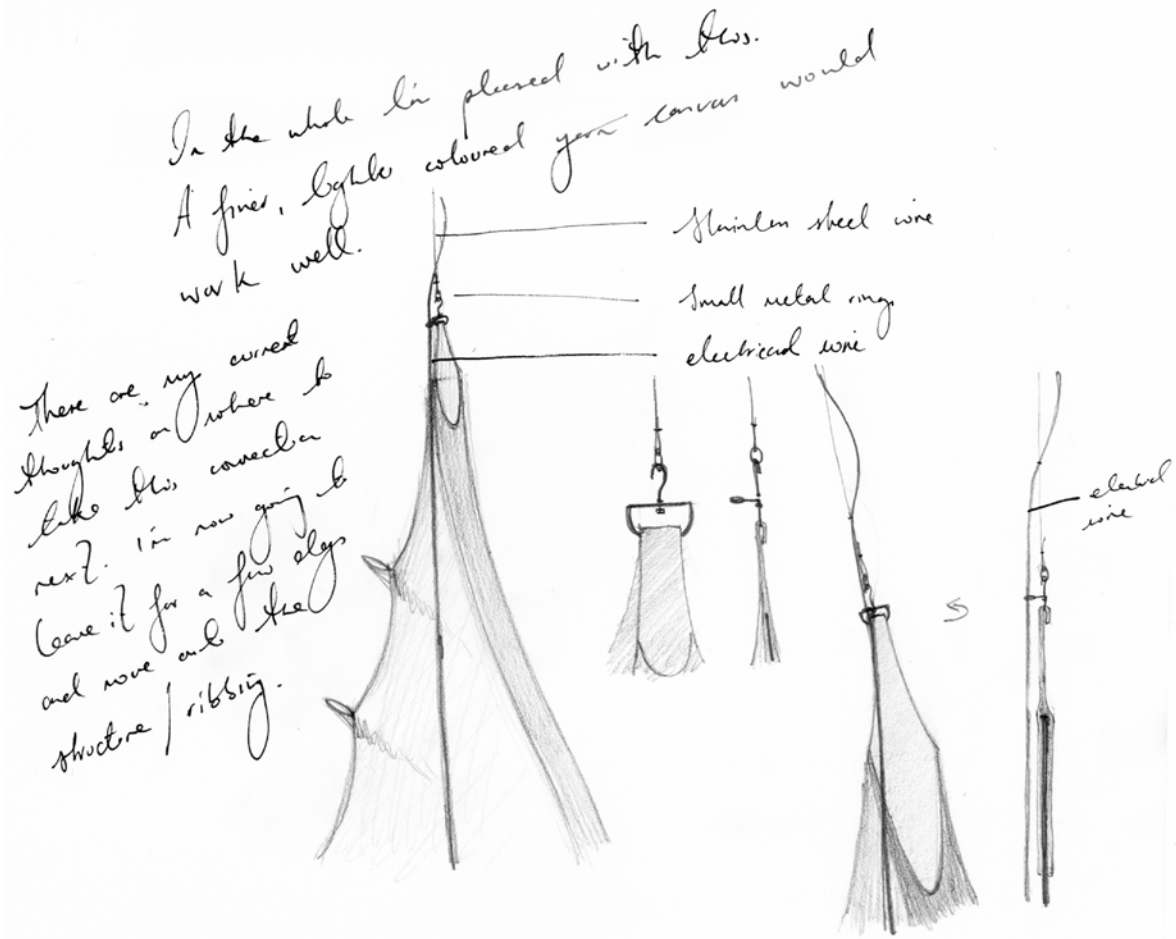 In the whole I'm pleased with this.
A finer, lighter coloured yarn canvas would
work well.
Stainless steel wire
Small metal rings
electrical wire
There are my current
thoughts on where to
take this connection
next. I'm now going to
leave it for a few days
and move onto the
structure / ribbing.
electrical
wire